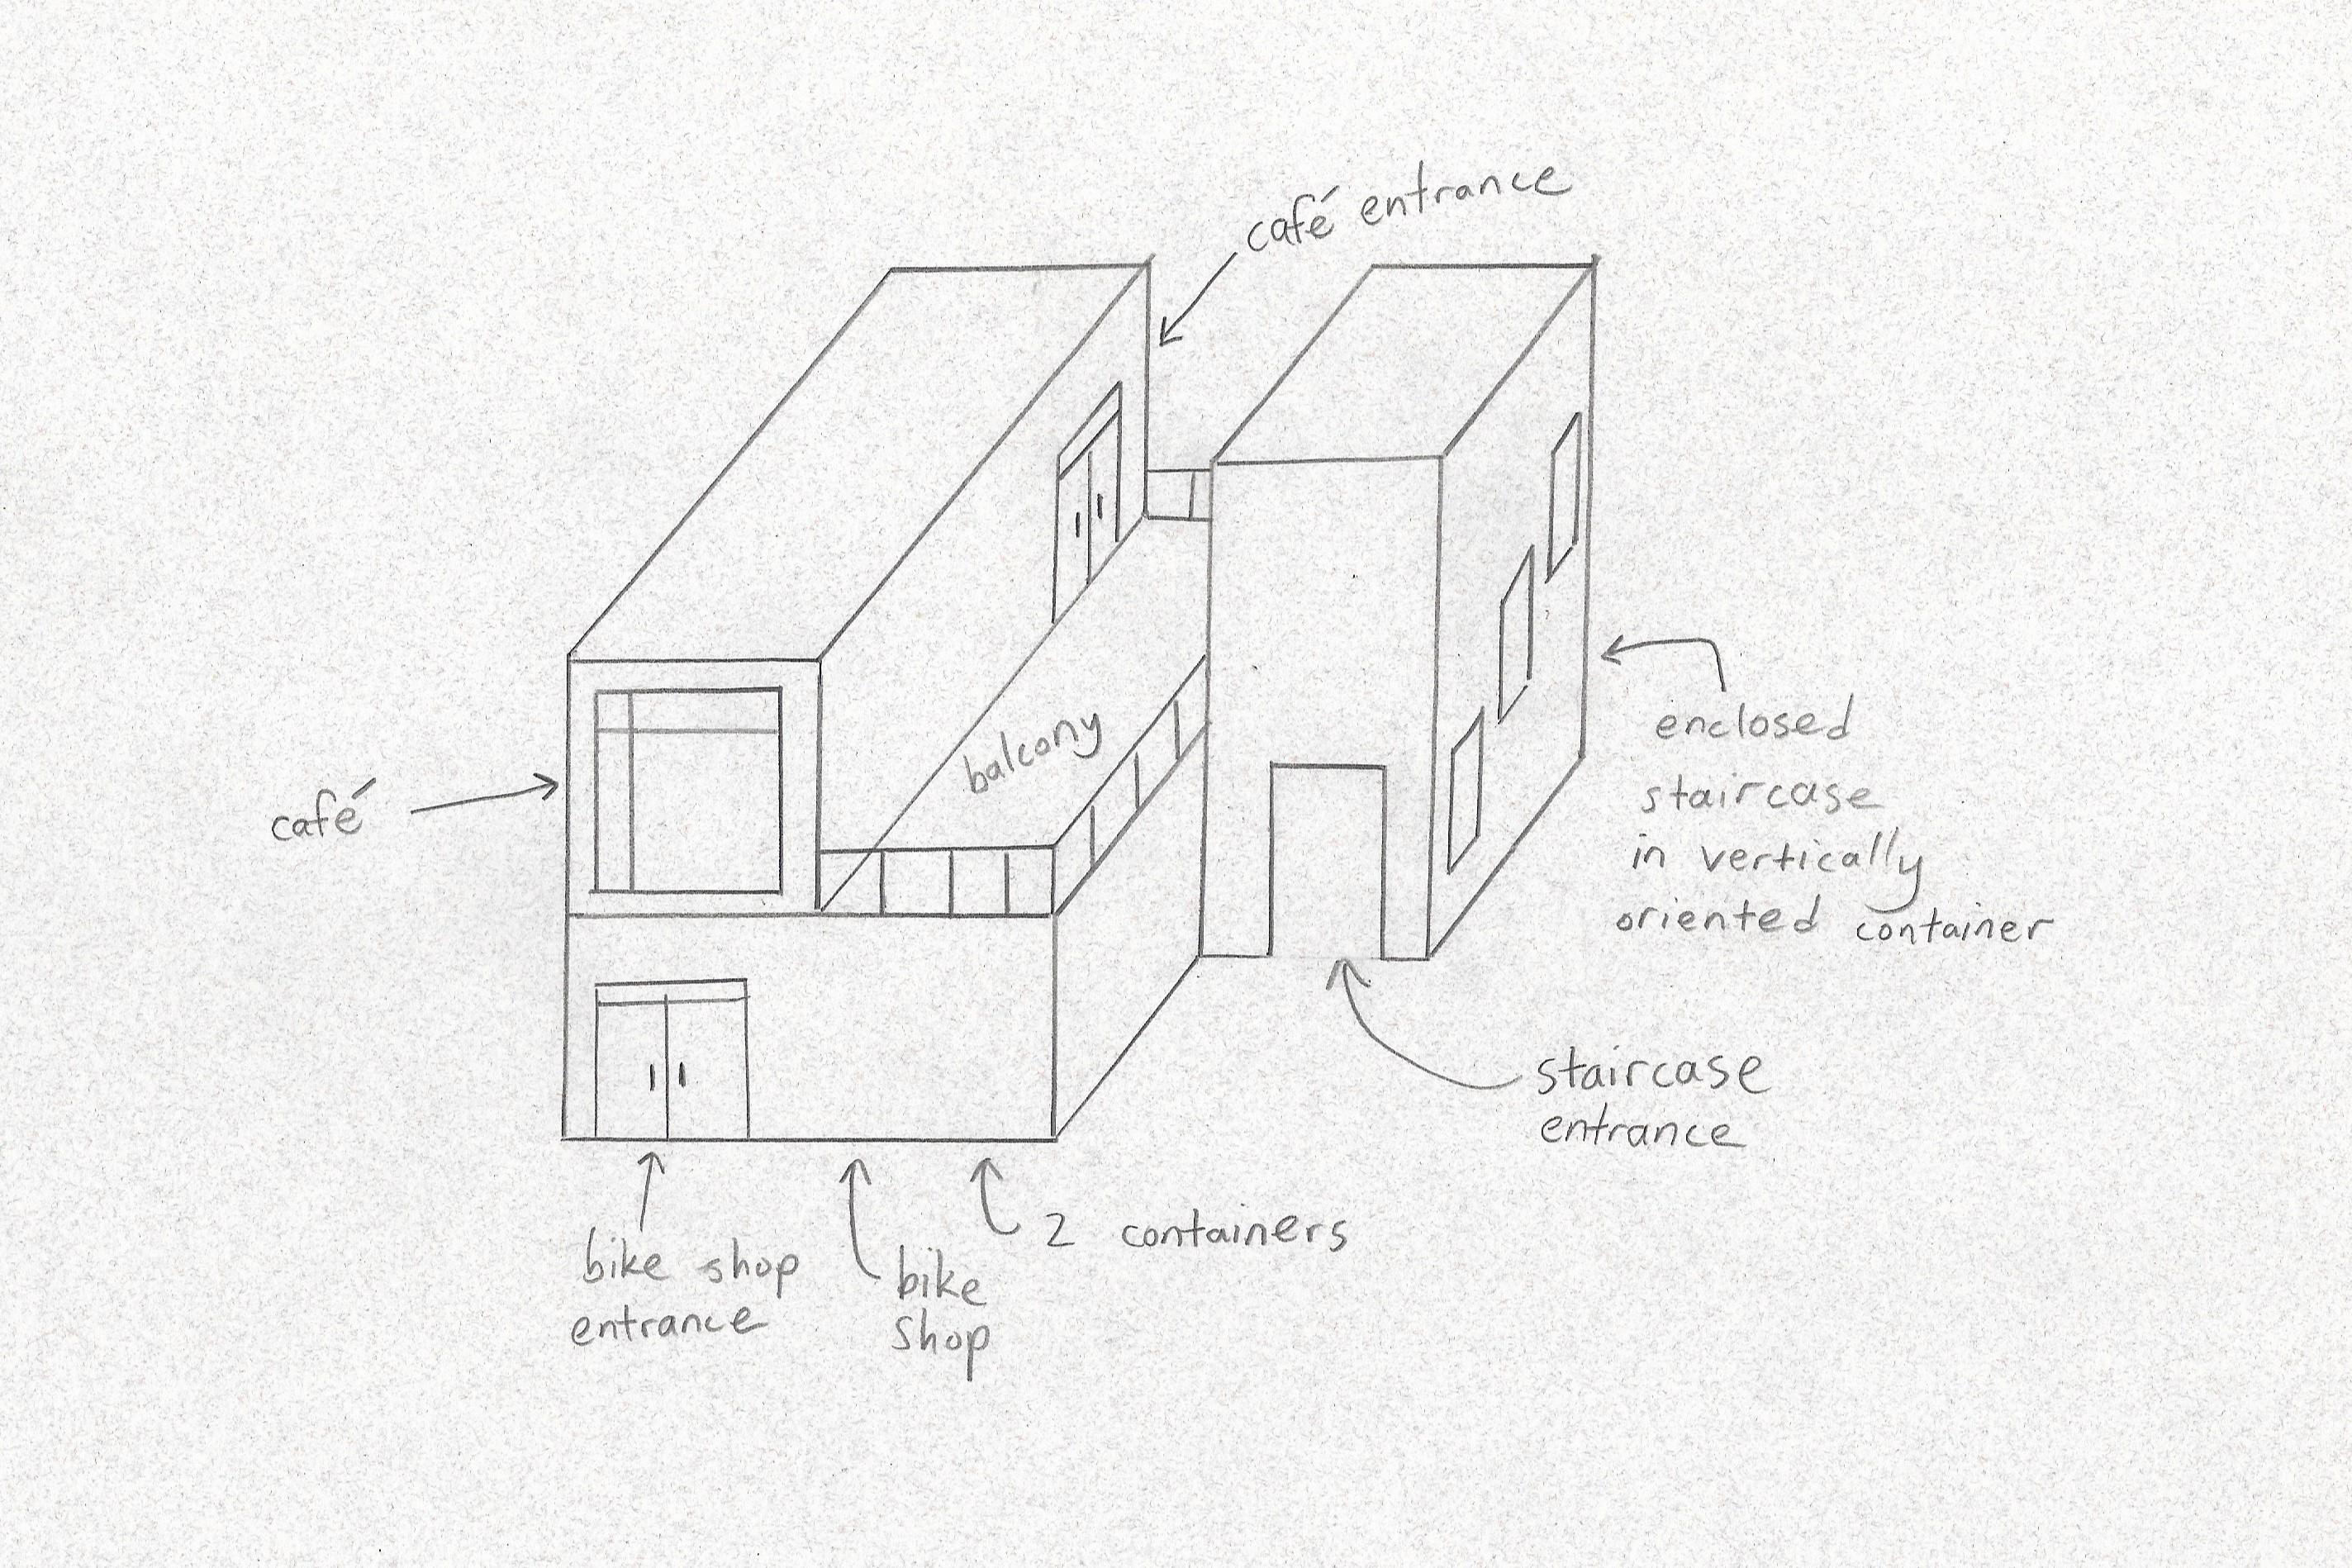 café entrance
balcony
café
enclosed
staircase
in vertically
oriented container
staircase
entrance
bike shop
entrance
bike
shop
2 containers